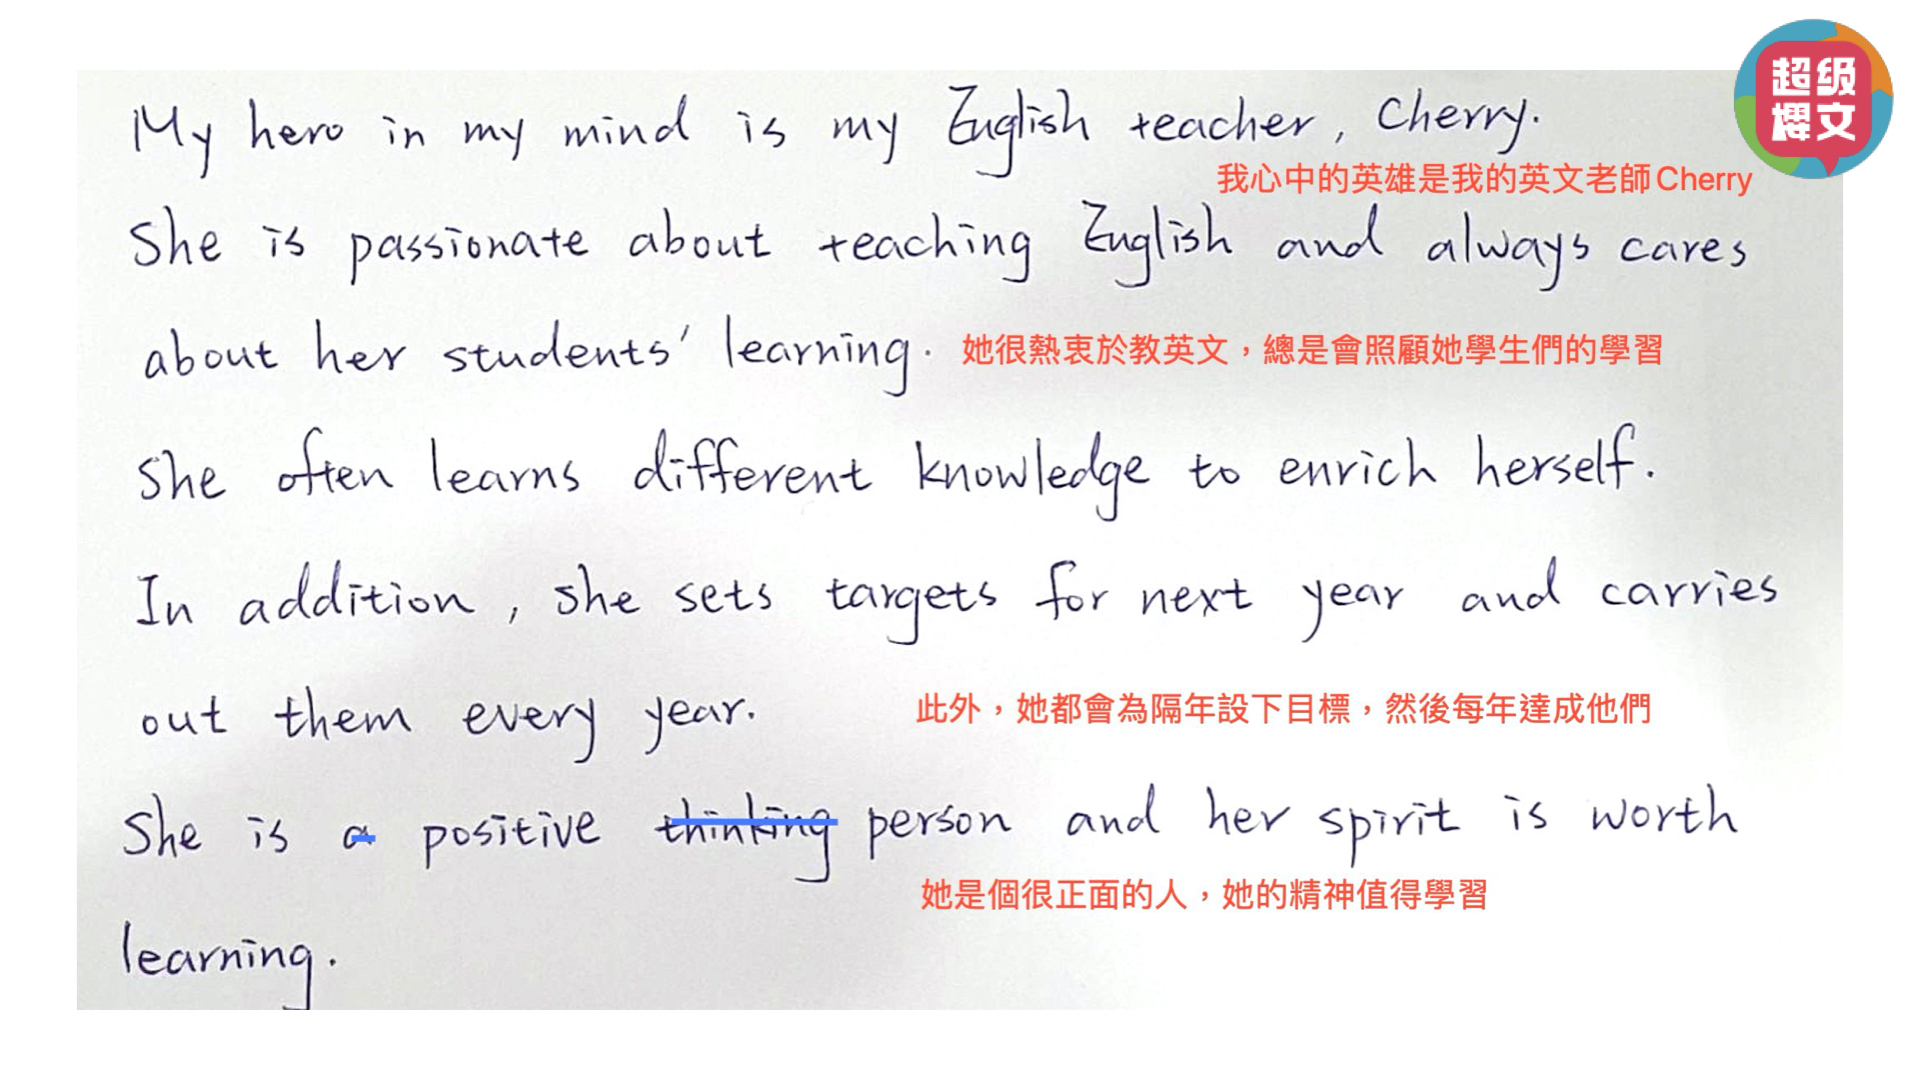 超級
櫻文
My hero in my mind is my English teacher, Cherry.
我心中的英雄是我的英文老師Cherry
She is passionate about teaching English and always cares
about her students' learning.
她很熱衷於教英文，總是會照顧她學生們的學習
She often learns different knowledge to enrich herself.
In addition, she sets targets for next year and carries
out them every year.
此外，她都會為隔年設下目標，然後每年達成他們
She is a positive thinking person and her spirit is worth
她是個很正面的人，她的精神值得學習
learning.